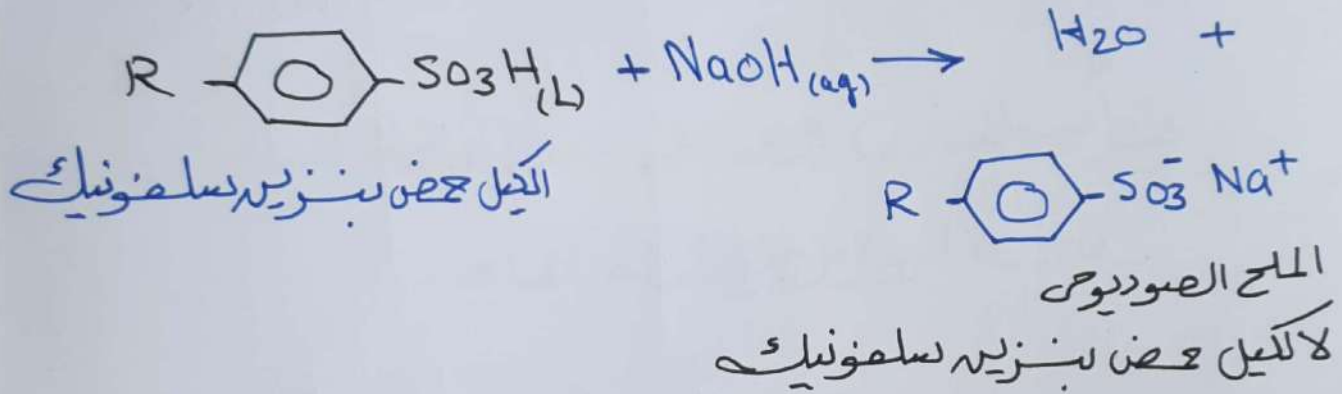 R-⌬-SO3H(L) + NaOH(aq) → H2O +
الكيل حمض بنزين سلفونيك
R-⌬-SO3⁻ Na⁺
الملح الصوديومى
لالكيل حمض بنزين سلفونيك